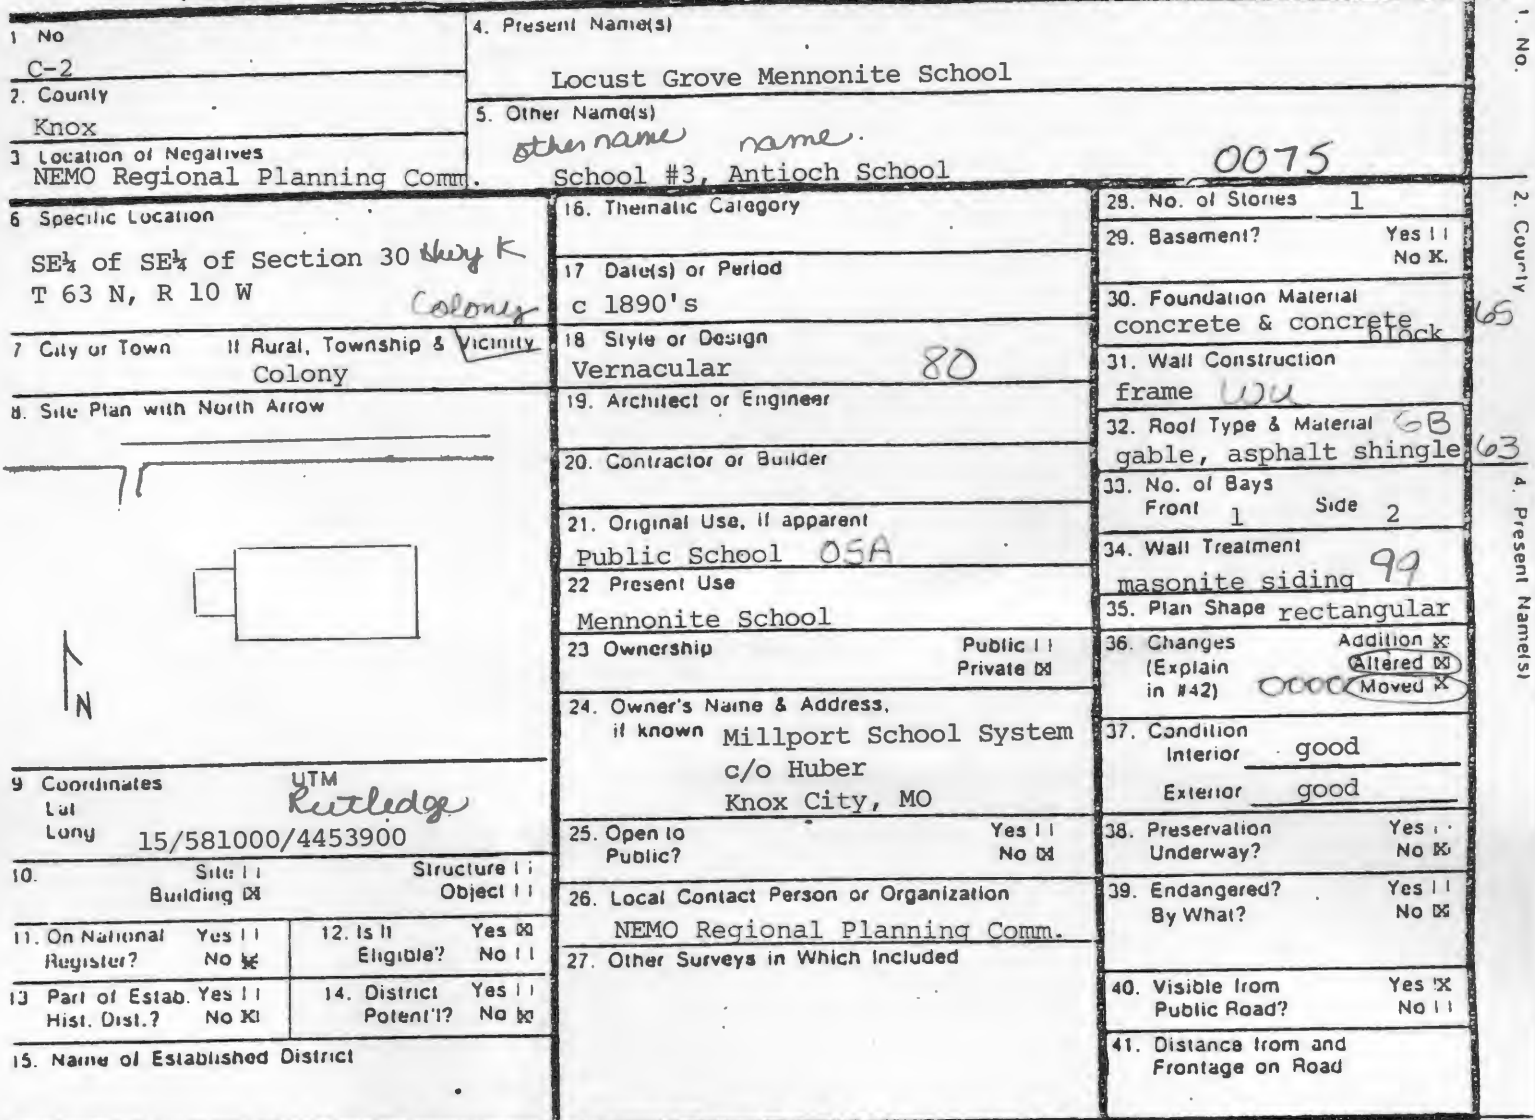 1 No
C-2
2. County
Knox
3 Location of Negatives
NEMO Regional Planning Comm.
4. Present Name(s)
Locust Grove Mennonite School
5. Other Name(s)
other name name.
School #3, Antioch School
0075
6 Specific Location
SE¼ of SE¼ of Section 30 Hwy K
T 63 N, R 10 W
Colony
7 City or Town If Rural, Township & Vicinity
Colony
8. Site Plan with North Arrow
N
9 Coordinates UTM
Lat Rutledge
Long 15/581000/4453900
10. Site
Structure
Building ☒
Object
11. On National Register? Yes
No ☒
12. Is It Eligible? Yes ☒
No
13 Part of Estab. Hist. Dist.? Yes
No ☒
14. District Potent'l? Yes
No ☒
15. Name of Established District
16. Thematic Category
17 Date(s) or Period
c 1890's
18 Style or Design
Vernacular 80
19. Architect or Engineer
20. Contractor or Builder
21. Original Use, if apparent
Public School OSA
22 Present Use
Mennonite School
23 Ownership Public
Private ☒
24. Owner's Name & Address,
if known Millport School System
c/o Huber
Knox City, MO
25. Open to Yes
Public? No ☒
26. Local Contact Person or Organization
NEMO Regional Planning Comm.
27. Other Surveys in Which Included
28. No. of Stories 1
29. Basement? Yes
No X.
30. Foundation Material
concrete & concrete block
65
31. Wall Construction
frame WU
32. Roof Type & Material GB
gable, asphalt shingle 63
33. No. of Bays
Front 1 Side 2
34. Wall Treatment
masonite siding 99
35. Plan Shape rectangular
36. Changes Addition ☒
(Explain Altered ☒
in #42) 0000 Moved ☒
37. Condition
Interior good
Exterior good
38. Preservation Yes
Underway? No ☒
39. Endangered? Yes
By What? No ☒
40. Visible from Yes ☒
Public Road? No
41. Distance from and
Frontage on Road
1. No.
2. County
4. Present Name(s)